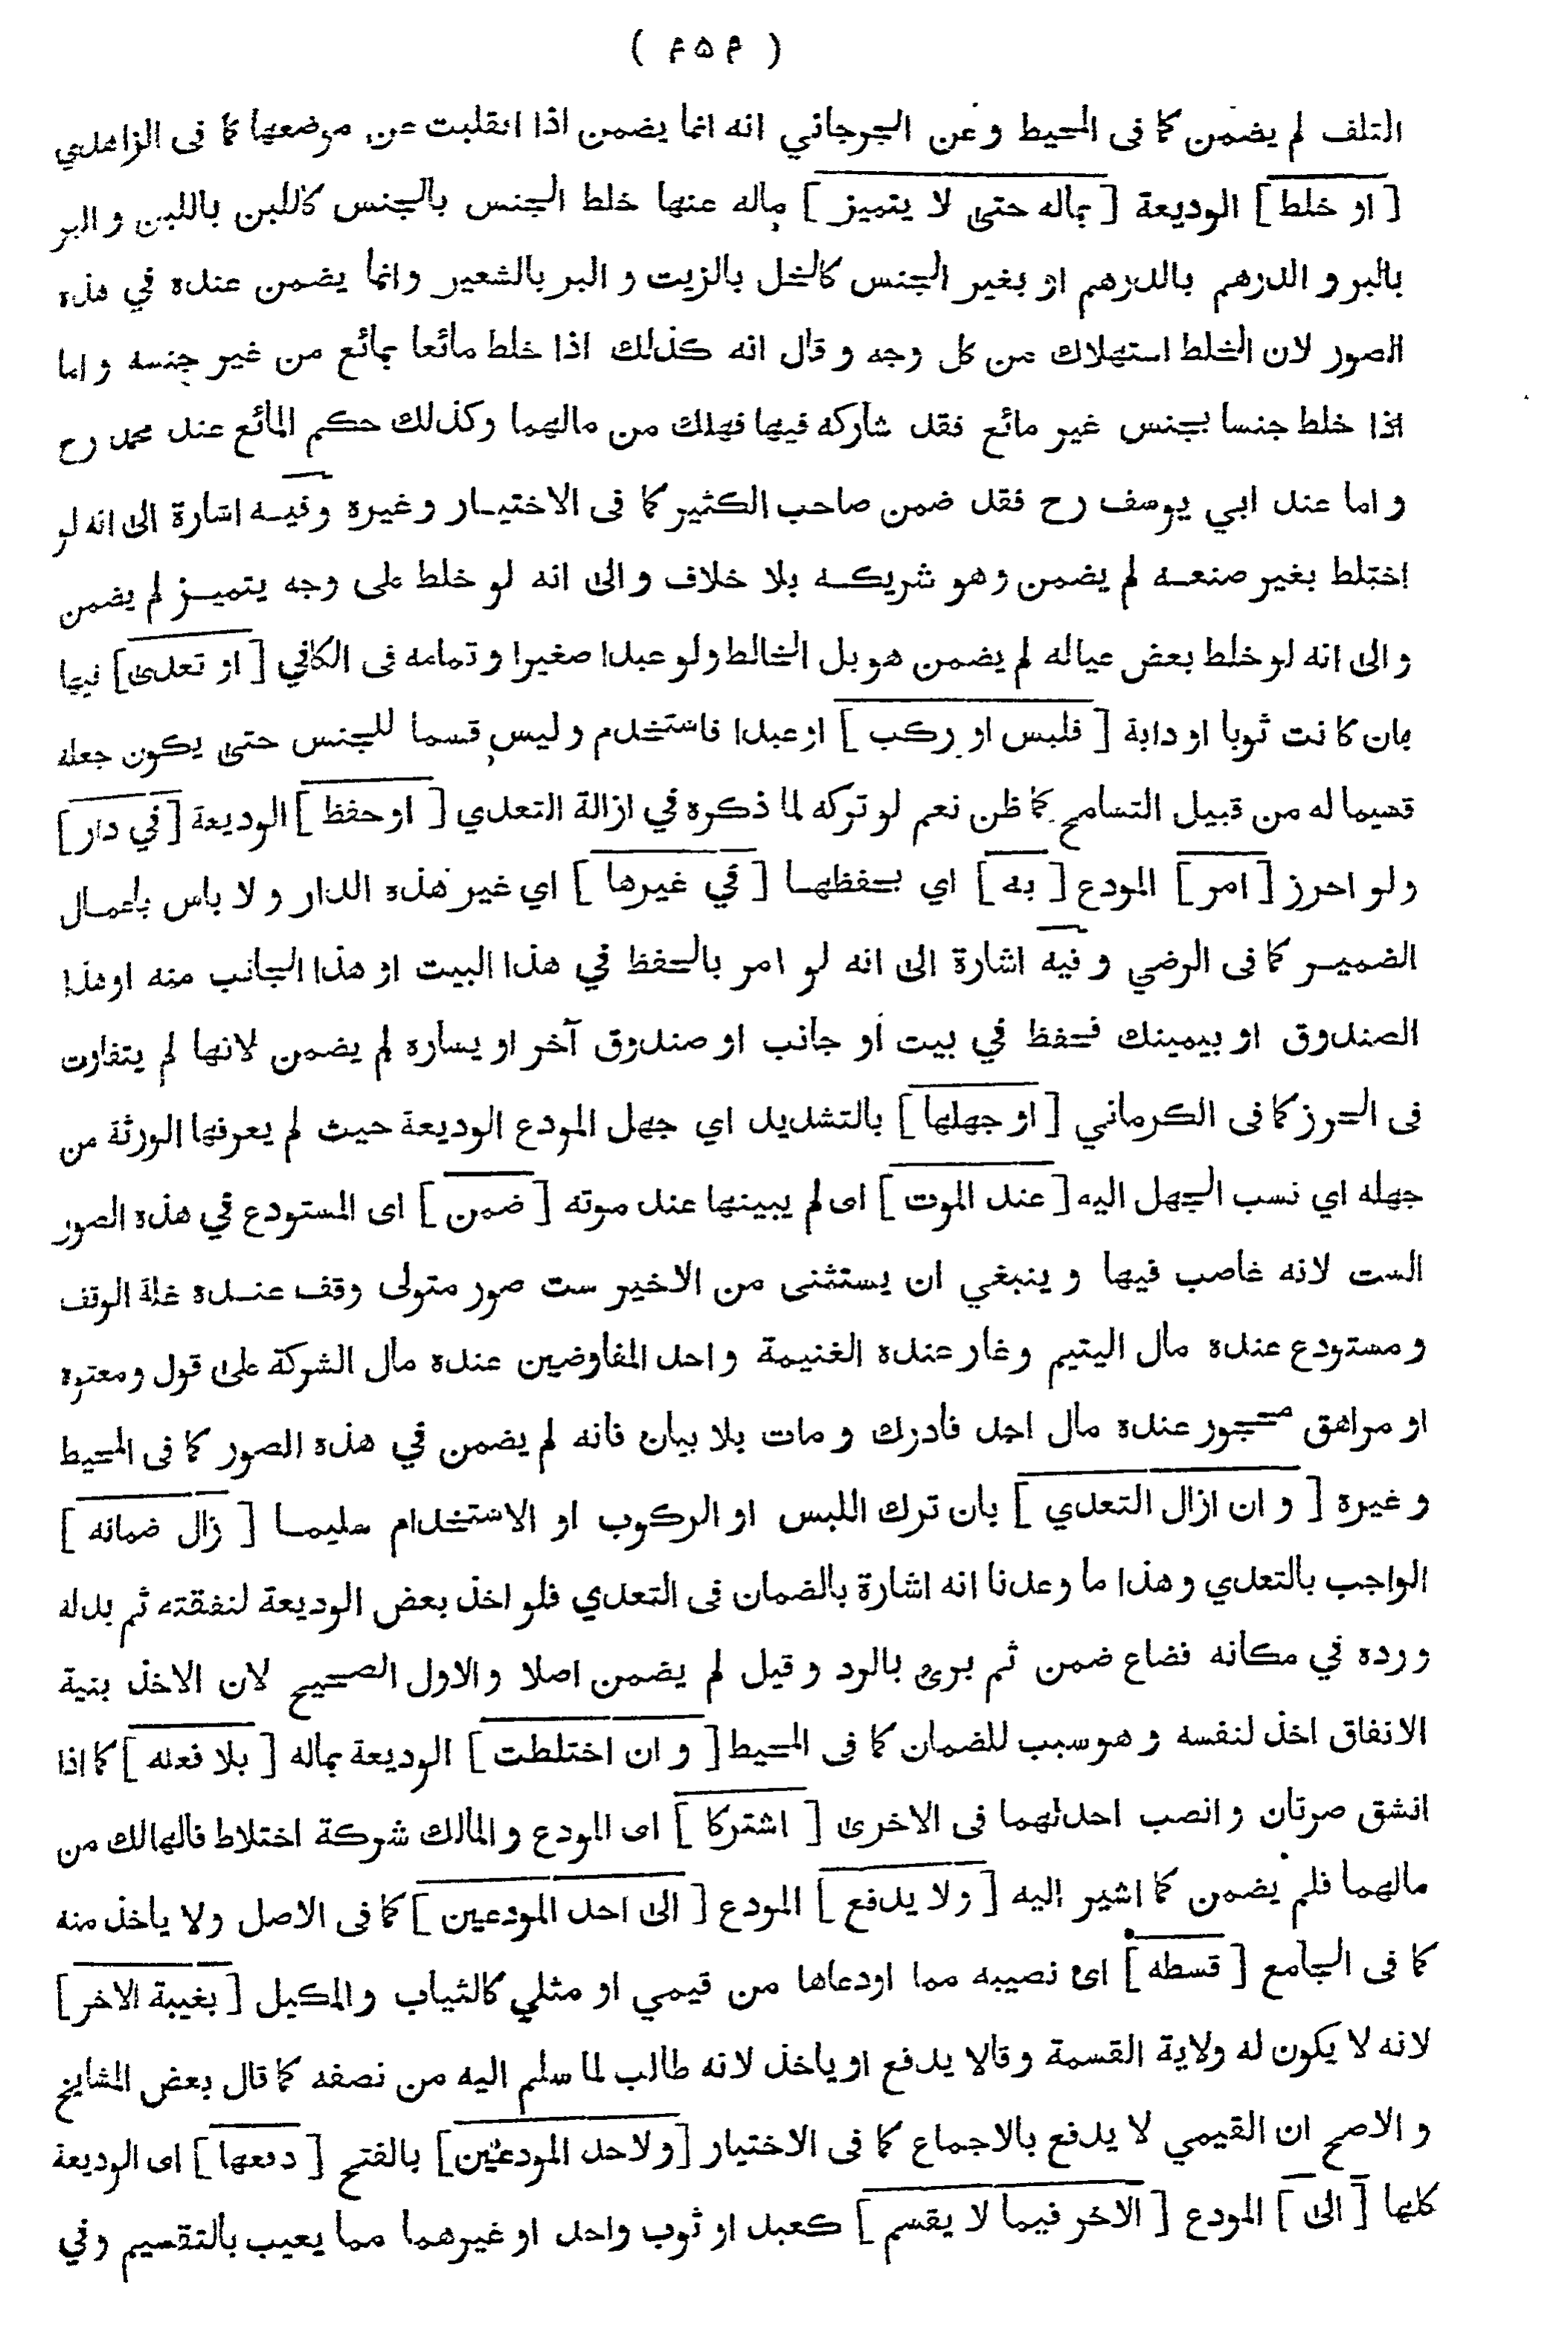 ( ۴۵۴ )
التلف لم يضمن كما فى المحيط وعن الجرجاني انه انما يضمن اذا انقلبت عن موضعها كما فى الزاهدي
[ او خلط ] الوديعة [ بماله حتى لا يتميز ] ماله عنها خلط الجنس بالجنس كاللبن باللبن و البر
بالبر و الدرهم بالدرهم او بغير الجنس كالخل بالزيت و البر بالشعير وانما يضمن عنده في هذه
الصور لان الخلط استهلاك من كل وجه و قال انه كذلك اذا خلط مائعا بمائع من غير جنسه و اما
اذا خلط جنسا بجنس غير مائع فقد شاركه فيها فهلك من مالهما وكذلك حكم المائع عند محمد رح
و اما عند ابي يوسف رح فقد ضمن صاحب الكثير كما فى الاختيار وغيره وفيه اشارة الى انه لو
اختلط بغير صنعه لم يضمن وهو شريكه بلا خلاف و الى انه لو خلط على وجه يتميز لم يضمن
و الى انه لو خلط بعض عياله لم يضمن هو بل الخالط ولو عبدا صغيرا و تمامه فى الكافي [ او تعدى ] فيها
بان كانت ثوبا او دابة [ فلبس او ركب ] او عبدا فاستخدم و ليس قسما للجنس حتى يكون جعله
قسيما له من قبيل التسامح كما ظن نعم لو تركه لما ذكره في ازالة التعدي [ او حفظ ] الوديعة [ في دار ]
ولو احرز [ امر ] المودع [ به ] اي بحفظها [ في غيرها ] اي غير هذه الدار و لا باس باعمال
الضمير كما فى الرضي و فيه اشارة الى انه لو امر بالحفظ في هذا البيت او هذا الجانب منه او هذا
الصندوق او بيمينك فحفظ في بيت او جانب او صندوق آخر او يساره لم يضمن لانها لم يتفاوت
فى الحرز كما فى الكرماني [ او جهلها ] بالتشديد اي جهل المودع الوديعة حيث لم يعرفها الورثة من
جهله اي نسب الجهل اليه [ عند الموت ] اى لم يبينها عند موته [ ضمن ] اى المستودع في هذه الصور
الست لانه غاصب فيها و ينبغي ان يستثنى من الاخير ست صور متولى وقف عنده غلة الوقف
و مستودع عنده مال اليتيم و غار عنده الغنيمة و احد المفاوضين عنده مال الشركة على قول و معتوه
او مراهق محجور عنده مال احد فادرك و مات بلا بيان فانه لم يضمن في هذه الصور كما فى المحيط
و غيره [ و ان ازال التعدي ] بان ترك اللبس او الركوب او الاستخدام سليما [ زال ضمانه ]
الواجب بالتعدي و هذا ما وعدنا انه اشارة بالضمان فى التعدي فلو اخذ بعض الوديعة لنفقته ثم بدله
و رده في مكانه فضاع ضمن ثم برئ بالرد و قيل لم يضمن اصلا و الاول الصحيح لان الاخذ بنية
الانفاق اخذ لنفسه و هو سبب للضمان كما فى المحيط [ و ان اختلطت ] الوديعة بماله [ بلا فعله ] كما اذا
انشق صرتان و انصب احدلهما فى الاخرى [ اشتركا ] اى المودع و المالك شركة اختلاط فالهالك من
مالهما فلم يضمن كما اشير اليه [ ولا يدفع ] المودع [ الى احد المودعين ] كما فى الاصل ولا ياخذ منه
كما فى الجامع [ قسطه ] اى نصيبه مما اودعاها من قيمي او مثلي كالثياب و المكيل [ بغيبة الاخر ]
لانه لا يكون له ولاية القسمة و قالا يدفع او ياخذ لانه طالب لما سلم اليه من نصفه كما قال بعض المشايخ
و الاصح ان القيمي لا يدفع بالاجماع كما فى الاختيار [ ولاحد المودعين ] بالفتح [ دفعها ] اى الوديعة
كلها [ الى ] المودع [ الاخر فيما لا يقسم ] كعبد او ثوب واحد او غيرهما مما يعيب بالتقسيم وفي